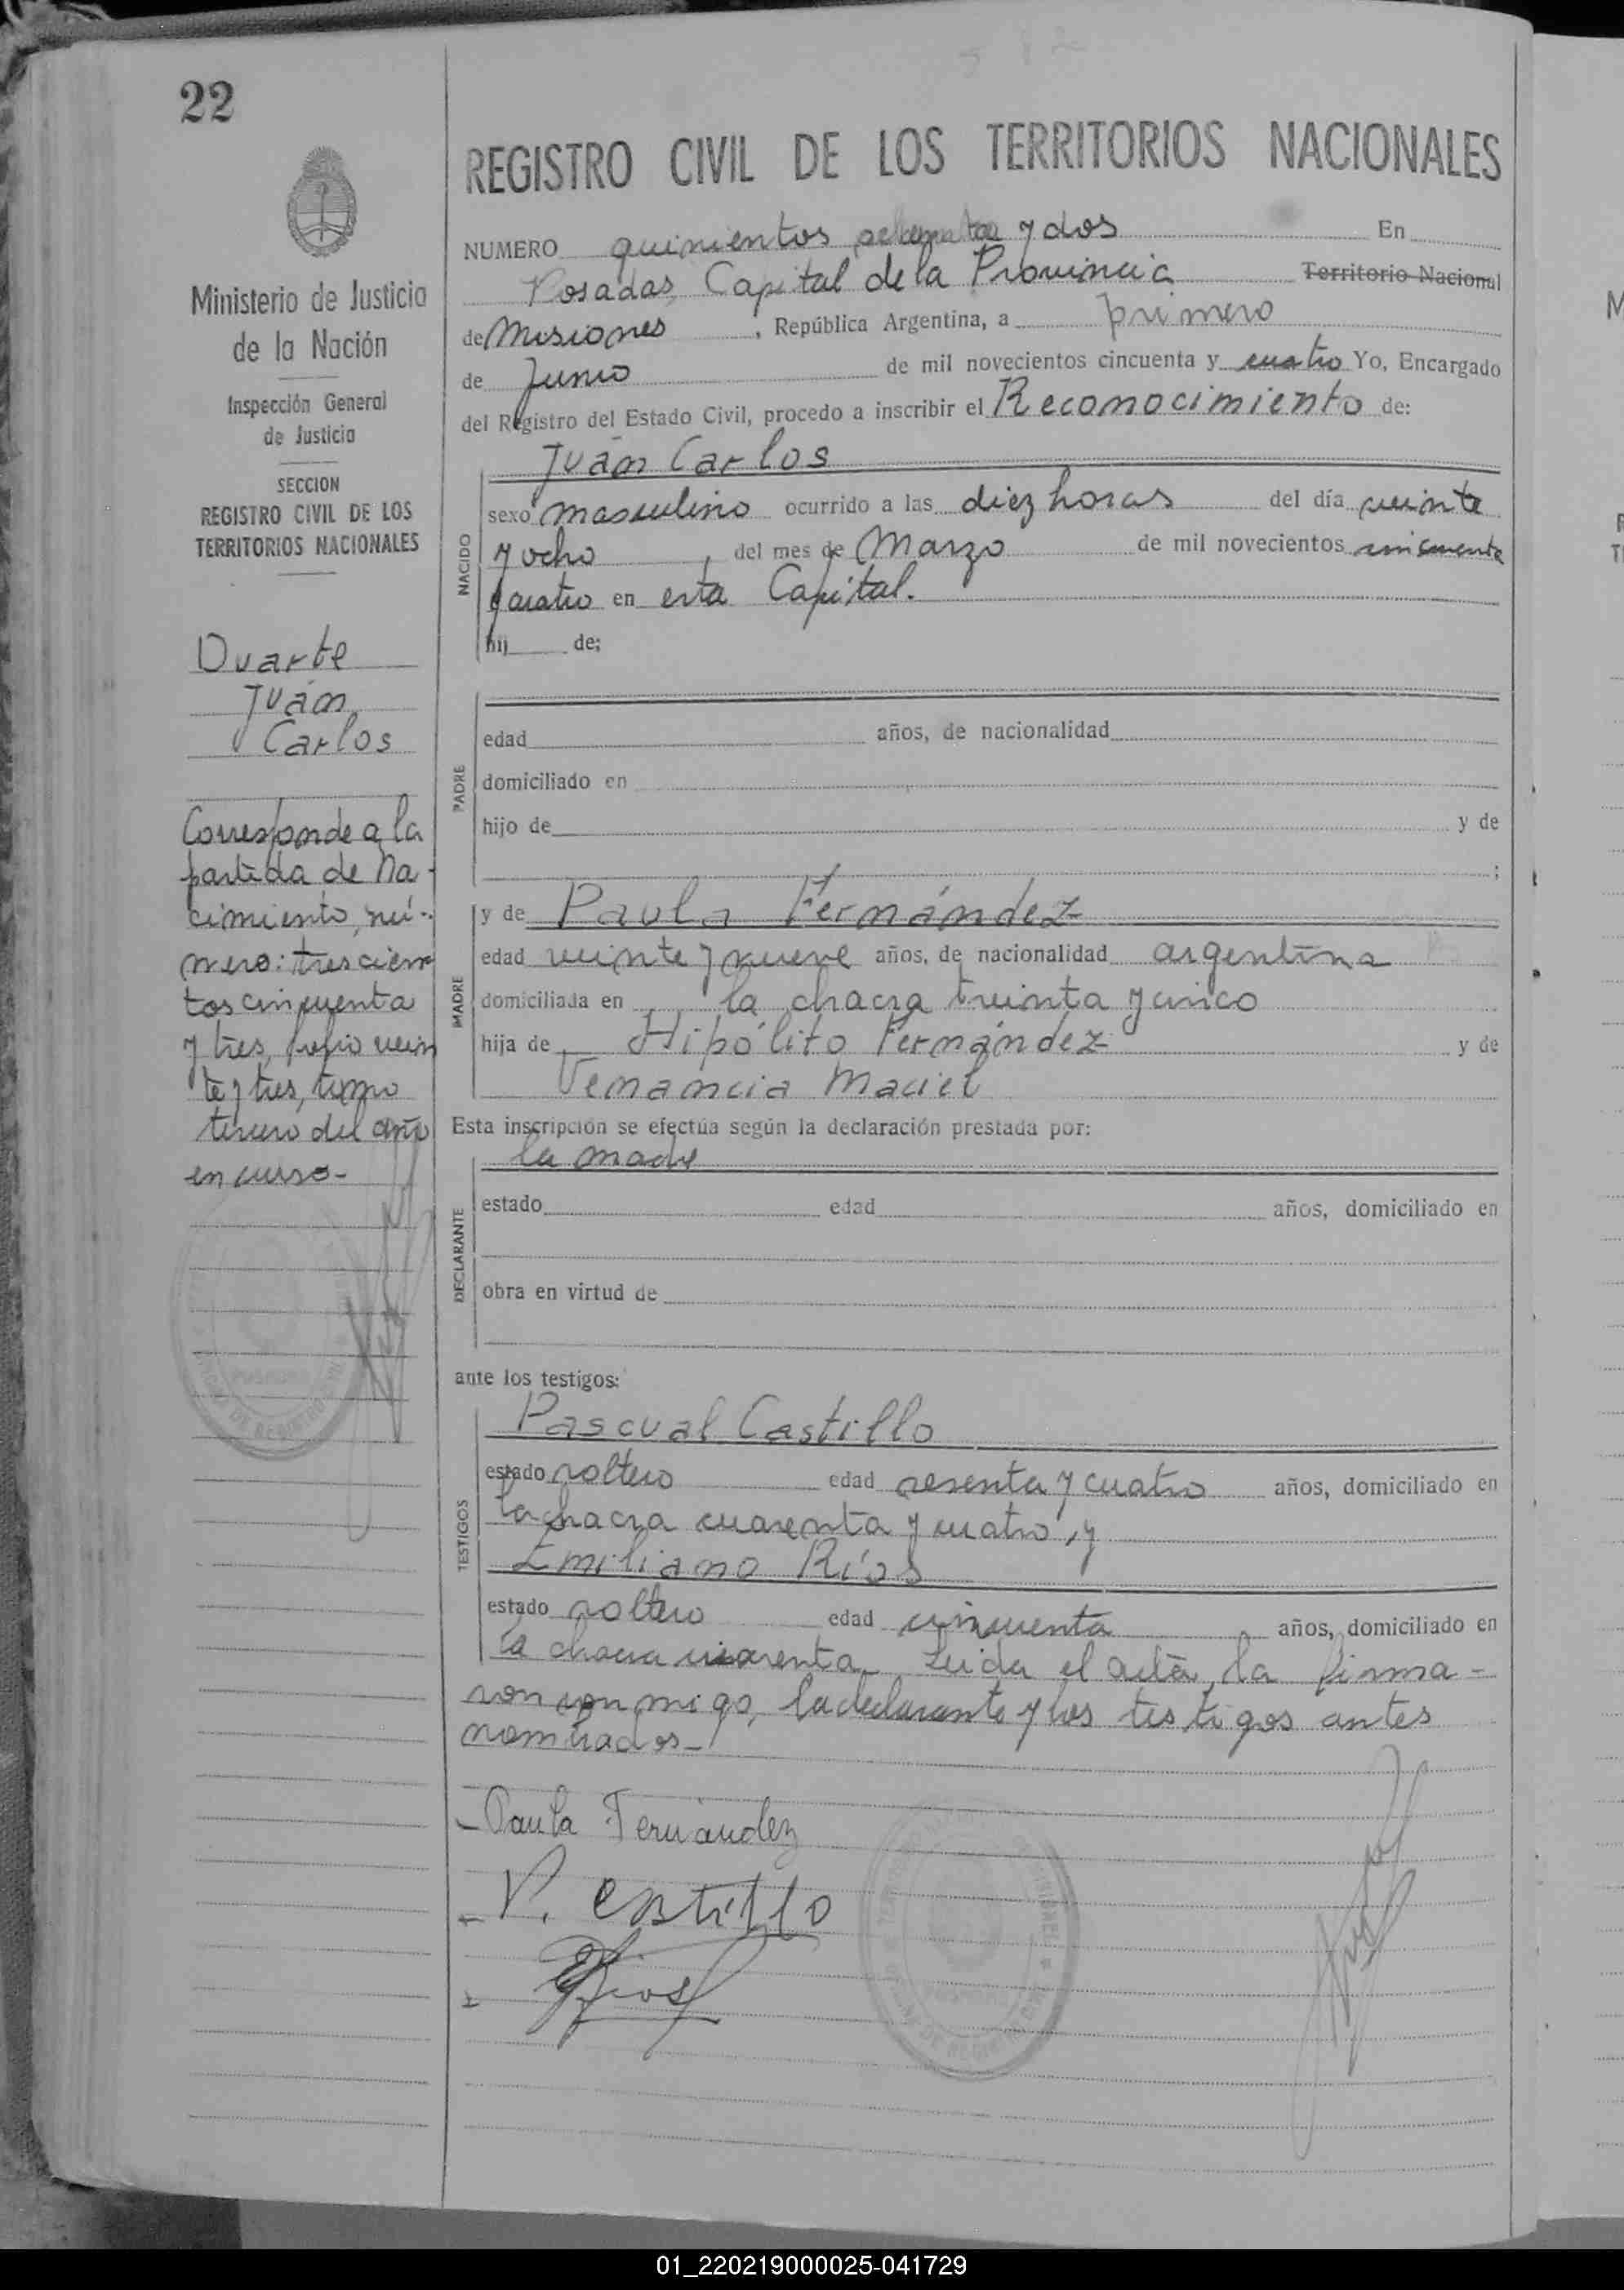 22
Ministerio de Justicia
de la Nación
Inspección General
de Justicia
SECCION
REGISTRO CIVIL DE LOS
TERRITORIOS NACIONALES
Duarte
Juan
Carlos
Corresponde a la
partida de Na-
cimiento, nú-
mero: trescien
tos cincuenta
y tres, folio vein
te y tres, tomo
tercero del año
en curso-
REGISTRO CIVIL DE LOS TERRITORIOS NACIONALES
NUMERO quinientos y dos En
Posadas, Capital de la Provincia Territorio Nacional
de Misiones, República Argentina, a primero
de Junio de mil novecientos cincuenta y cuatro Yo, Encargado
del Registro del Estado Civil, procedo a inscribir el Reconocimiento de:
Juan Carlos
NACIDO
sexo masculino ocurrido a las diez horas del día veinte
y ocho, del mes de Marzo de mil novecientos cincuenta
y cuatro en esta Capital.
hij de;
PADRE
edad años, de nacionalidad
domiciliado en
hijo de y de
;
MADRE
y de Paula Fernández
edad veinte y nueve años, de nacionalidad argentina
domiciliada en la chacra treinta y cinco
hija de Hipólito Fernández y de
Venancia Maciel
Esta inscripción se efectúa según la declaración prestada por:
la madre
DECLARANTE
estado edad años, domiciliado en
obra en virtud de
ante los testigos:
Pascual Castillo
TESTIGOS
estado soltero edad sesenta y cuatro años, domiciliado en
la chacra cuarenta y cuatro, y
Emiliano Ríos
estado soltero edad cincuenta años, domiciliado en
la chacra cuarenta. Leida el acta, la firma-
ron conmigo, la declarante y los testigos antes
nombrados-
- Paula Fernández
- P. Castillo
- Rios
01_220219000025-041729